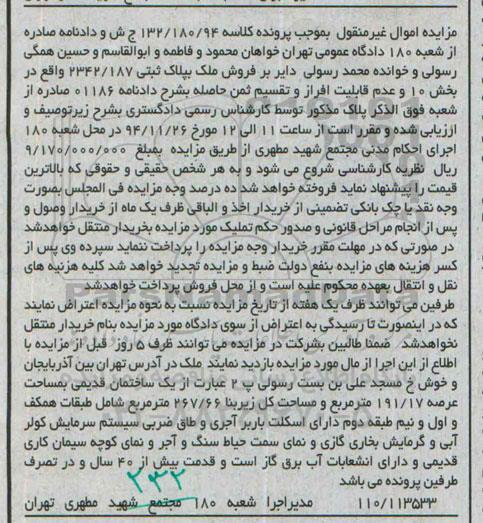 مزایده اموال غیرمنقول بموجب پرونده کلاسه ۱۳۲/۱۸۰/۹۴ ج ش و دادنامه صادره
از شعبه ۱۸۰ دادگاه عمومی تهران خواهان محمود و فاطمه و ابوالقاسم و حسین همگی
رسولی و خوانده محمد رسولی دایر بر فروش ملک بپلاک ثبتی ۲۳۴۲/۱۸۷ واقع در
بخش ۱۰ و عدم قابلیت افراز و تقسیم ثمن حاصله بشرح دادنامه ۰۱۱۸۶ صادره از
شعبه فوق الذکر پلاک مذکور توسط کارشناس رسمی دادگستری بشرح زیرتوصیف و
ارزیابی شده و مقرر است از ساعت ۱۱ الی ۱۲ مورخ ۹۴/۱۱/۲۶ در محل شعبه ۱۸۰
اجرای احکام مدنی مجتمع شهید مطهری از طریق مزایده بمبلغ ۹/۱۷۰/۰۰۰/۰۰۰
ریال نظریه کارشناسی شروع می شود و به هر شخص حقیقی و حقوقی که بالاترین
قیمت را پیشنهاد نماید فروخته خواهد شد ده درصد وجه مزایده فی المجلس بصورت
وجه نقد یا چک بانکی تضمینی از خریدار اخذ و الباقی ظرف یک ماه از خریدار وصول و
پس از انجام مراحل قانونی و صدور حکم تملیک مورد مزایده بخریدار منتقل خواهدشد
در صورتی که در مهلت مقرر خریدار وجه مزایده را پرداخت ننماید سپرده وی پس از
کسر هزینه های مزایده بنفع دولت ضبط و مزایده تجدید خواهد شد کلیه هزینه های
نقل و انتقال بعهده محکوم علیه است و از محل فروش پرداخت خواهدشد
طرفین می توانند ظرف یک هفته از تاریخ مزایده نسبت به نحوه مزایده اعتراض نمایند
که در اینصورت تا رسیدگی به اعتراض از سوی دادگاه مورد مزایده بنام خریدار منتقل
نخواهدشد ضمنا طالبین بشرکت در مزایده می توانند ظرف ۵ روز قبل از مزایده با
اطلاع از این اجرا از مال مورد مزایده بازدید نمایند ملک در آدرس تهران بین آذربایجان
و خوش خ مسجد علی بن بست رسولی پ ۲ عبارت از یک ساختمان قدیمی بمساحت
عرصه ۱۹۱/۱۷ مترمربع و مساحت کل زیربنا ۲۶۷/۶۶ مترمربع شامل طبقات همکف
و اول و نیم طبقه دوم دارای اسکلت باربر آجری و طاق ضربی سیستم سرمایش کولر
آبی و گرمایش بخاری گازی و نمای سمت حیاط سنگ و آجر و نمای کوچه سیمان کاری
قدیمی و دارای انشعابات آب برق گاز است و قدمت بیش از ۴۰ سال و در تصرف
طرفین پرونده می باشد
۲۳۲
۱۱۰/۱۱۳۵۳۳ مدیراجرا شعبه ۱۸۰ مجتمع شهید مطهری تهران